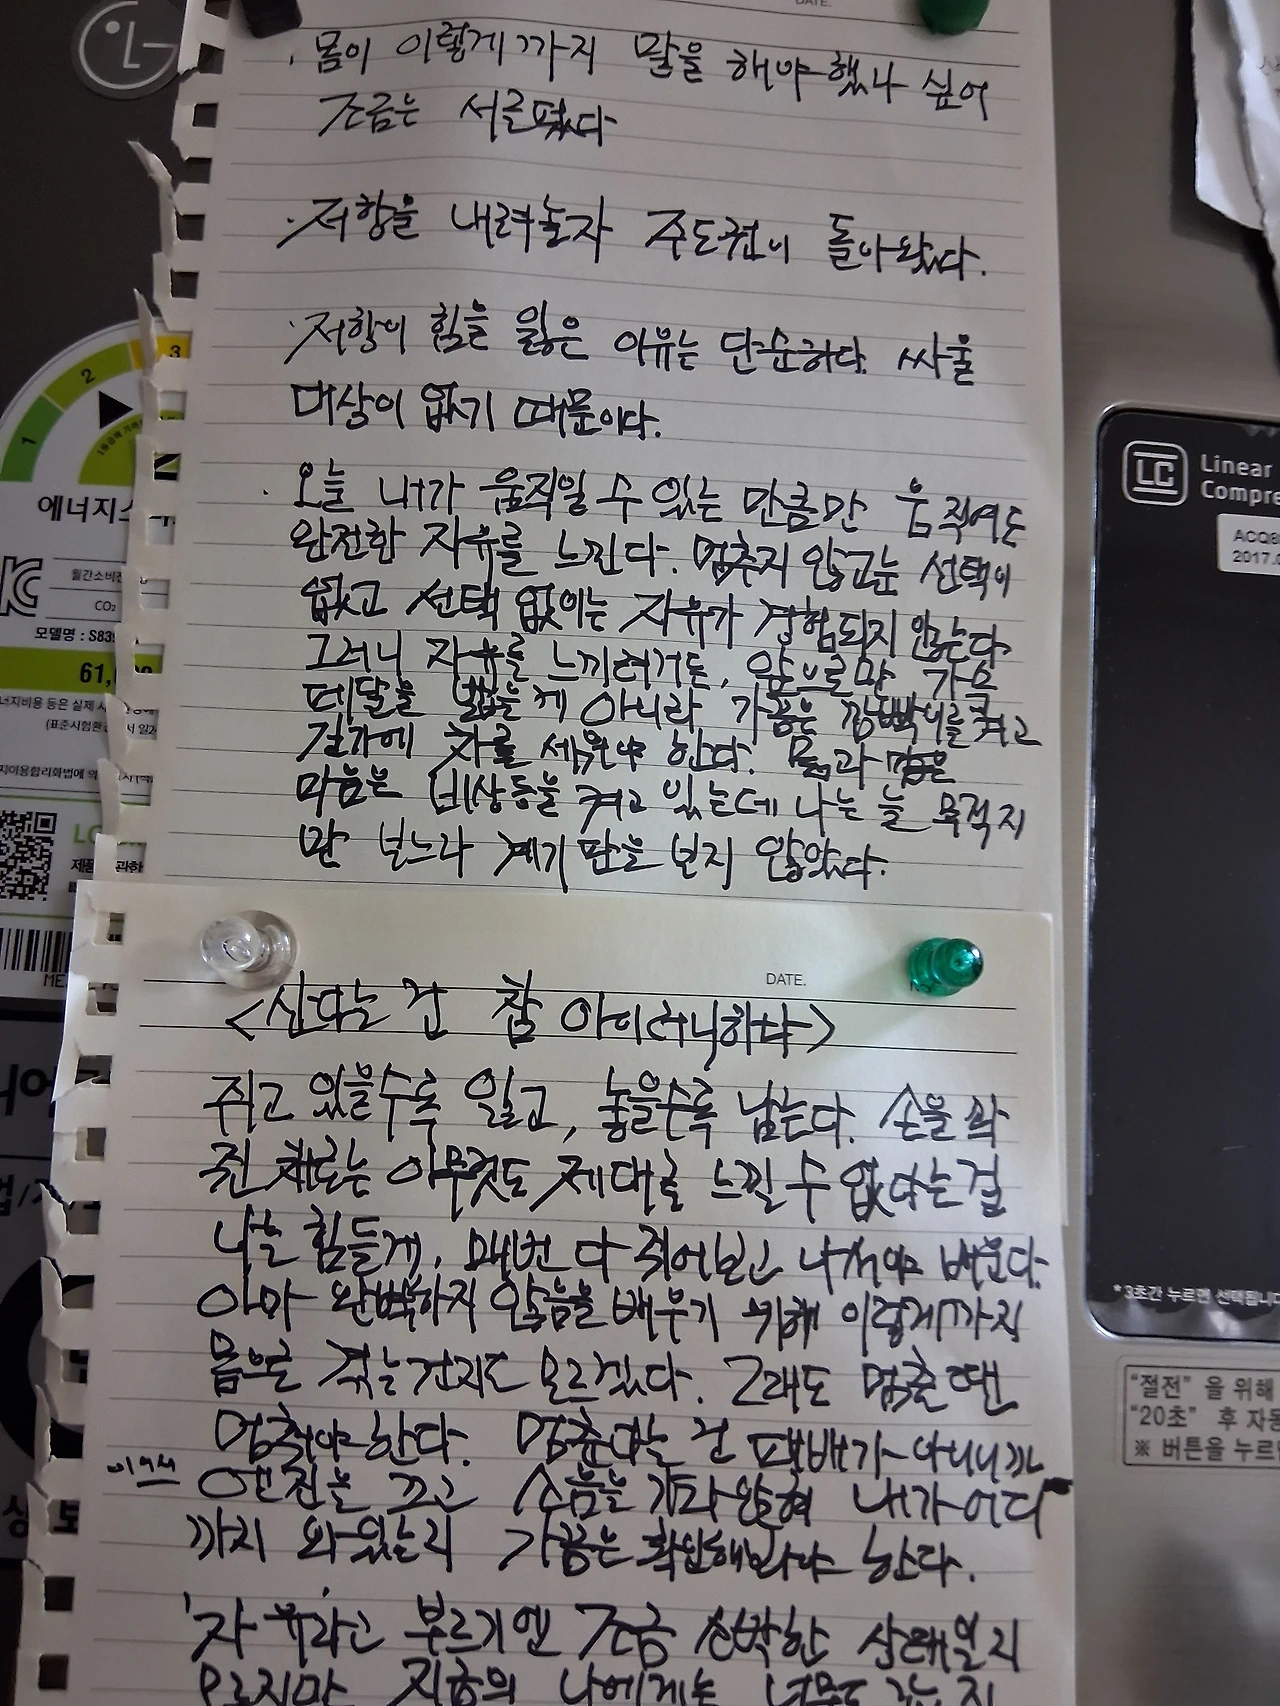 DATE.
· 몸이 이렇게까지 말을 해야했나 싶어
조금은 서글펐다
· 저항을 내려놓자 주도권이 돌아왔다.
· 저항이 힘을 잃은 이유는 단순하다. 싸울
대상이 없기 때문이다.
· 오늘 내가 움직일 수 있는 만큼만 움직여도
완전한 자유를 느낀다. 멈추지 않고는 선택이
없고 선택 없이는 자유가 경험되지 않는다
그러니 자유를 느끼려거든, 앞으로만 가요
페달을 밟는게 아니라 가끔은 깜빡이를 켜고
갓가에 차를 세워야 한다. 몸과
마음은 비상등을 켜고 있는데 나는 늘 목적지
만 보느라 계기판을 보지 않았다.
DATE.
<산다는 건 참 아이러니하다>
쥐고 있을수록 잃고, 놓을수록 남는다. 손을 꽉
쥔 채로는 아무것도 제대로 느낄 수 없다는걸
나는 힘들게, 매번 다 겪어보고 나서야 배운다.
아마 완벽하지 않음을 배우기 위해 이렇게까지
몸으로 겪는건지도 모르겠다. 그래도 멈출 땐
멈춰야한다. 멈춘다는 건 패배가 아니니까
엔진을 끄고 소음을 가라앉혀 내가 어디
까지 와있는지 가끔은 확인해봐야 한다.
'자유'라고 부르기엔 조금 상태일지
모르지만 지금의 나에게는
LG
1
2
3
에너지소
월간소비전
CO₂
모델명 : S83
61,
LG
제품
관한
Linear
Compre
ACQ8
2017.
*3초간 누르면 선택됩니다
"절전" 을 위해
"20초" 후 자동
※ 버튼을 누르